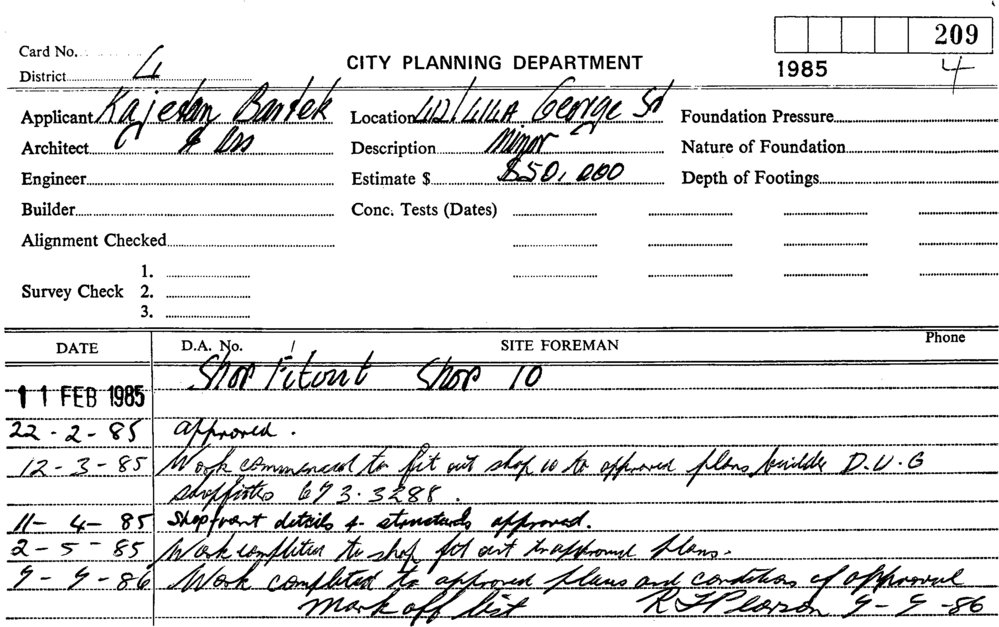 209
Card No.
District 4
CITY PLANNING DEPARTMENT
1985
4
Applicant Kajetan Bartek
Location 412/414A George St
Foundation Pressure
Architect & Ass
Description Minor
Nature of Foundation
Engineer
Estimate $ $50,000
Depth of Footings
Builder
Conc. Tests (Dates)
Alignment Checked
1.
Survey Check 2.
3.
DATE D.A. No. SITE FOREMAN Phone
Shop Fitout Shop 10
11 FEB 1985
22-2-85 approved.
12-3-85 Work commenced to fit out shop 10 to approved plans, builder D.U.G
shopfitters 673.3288.
11-4-85 Shopfront details & structurals approved.
2-5-85 Work completed to shop fit out to approved plans.
9-9-86 Work completed to approved plans and conditions of approval
Mark off list R J Pearson 9-9-86